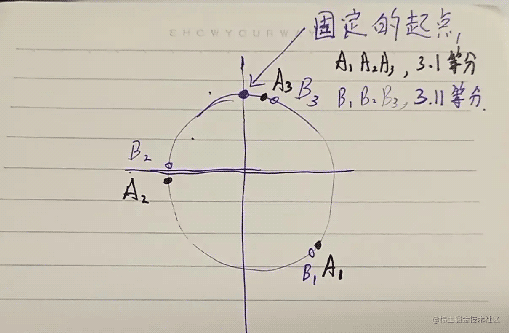 SHOWYOURW
固定的起点,
A₁A₂A₃, 3.1等分
B₁B₂B₃, 3.11等分.
A₃ B₃
B₂
A₂
B₁ A₁